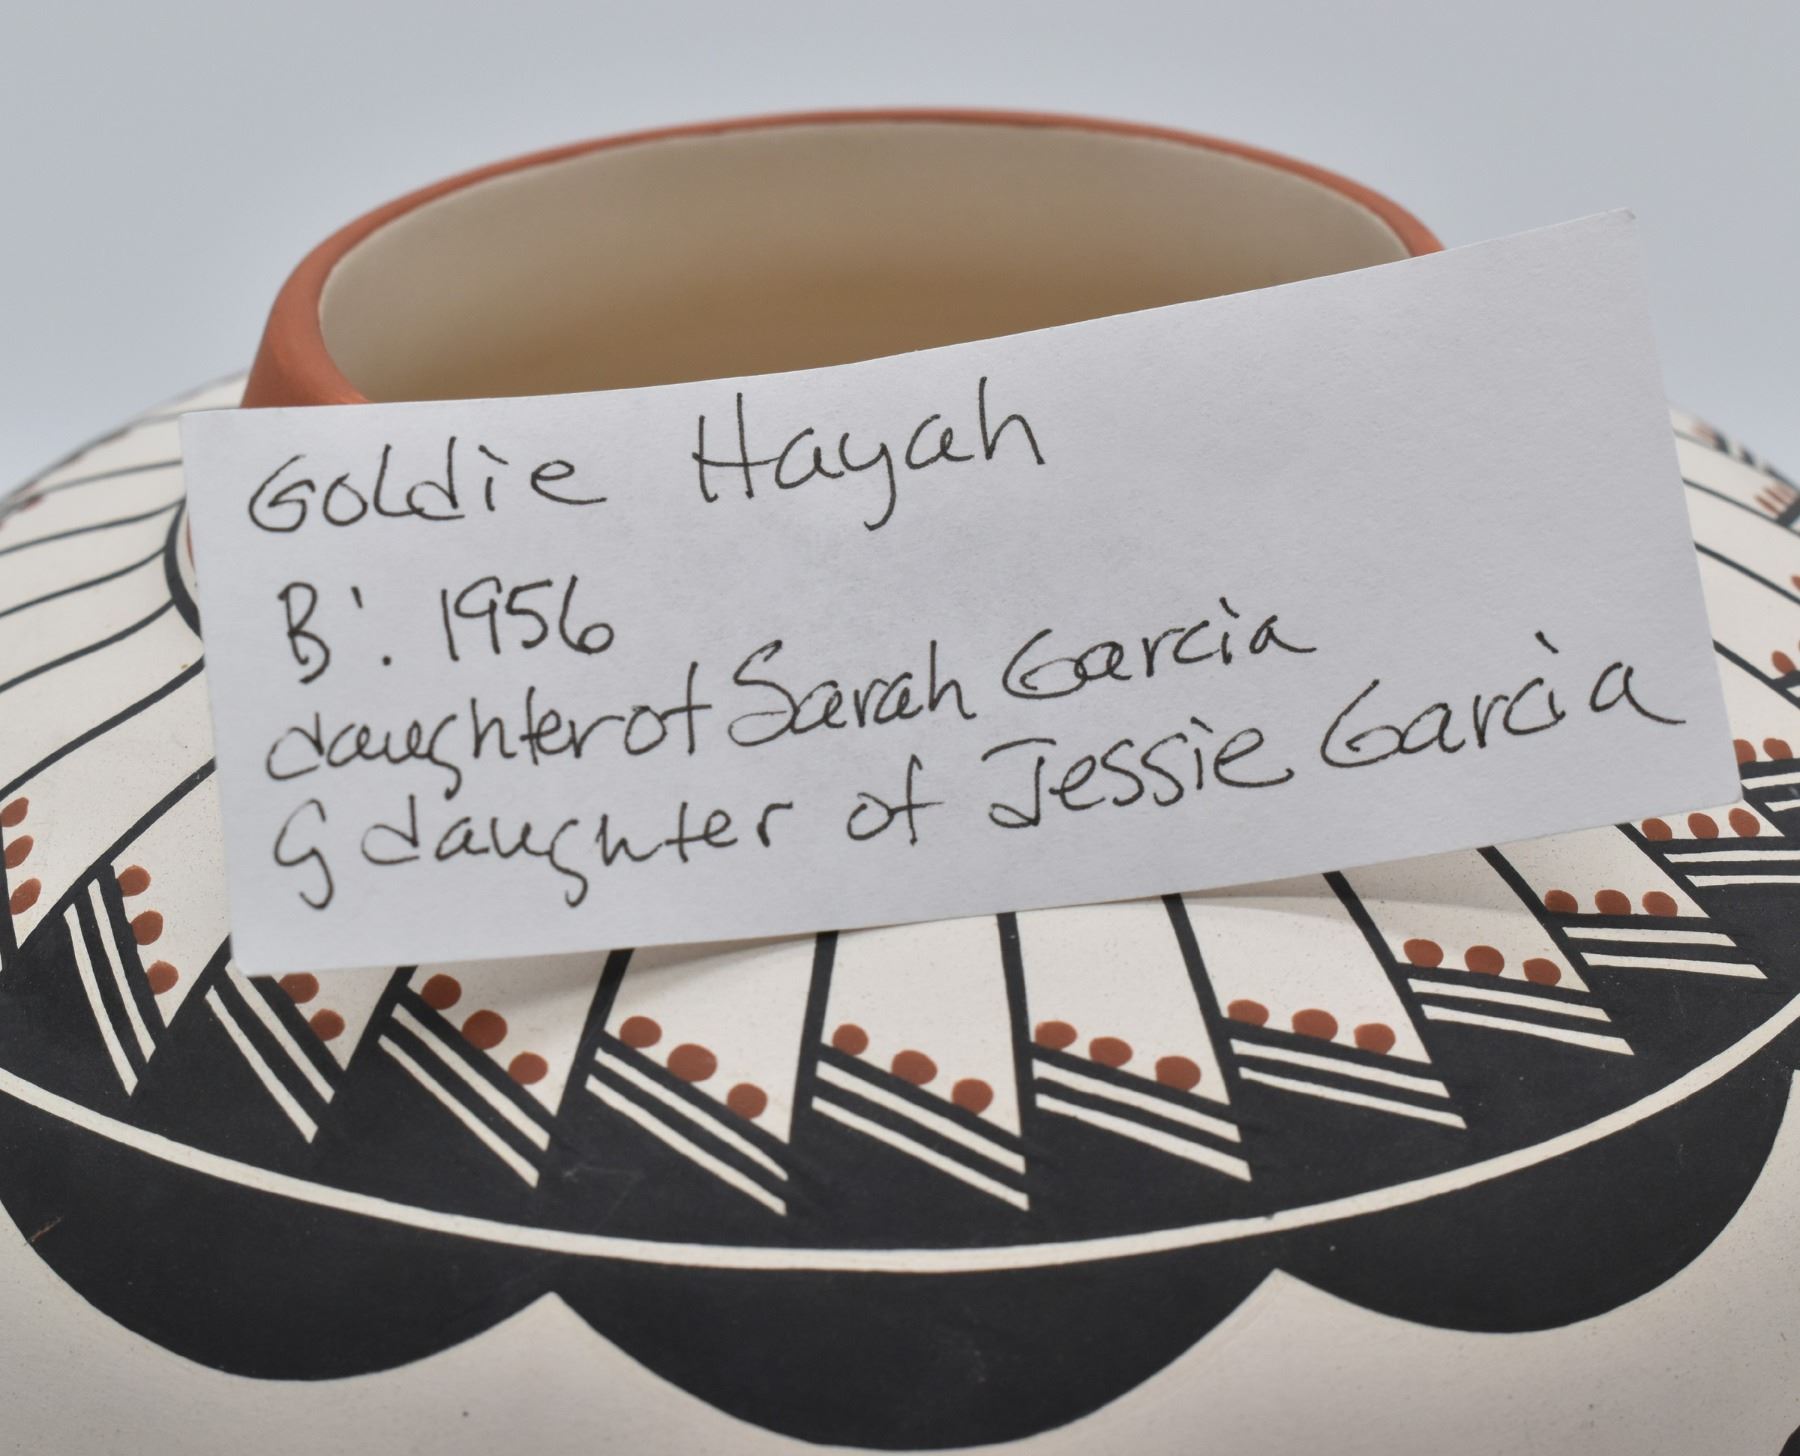 Goldie Hayah
B: 1956
daughter of Sarah Garcia
G daughter of Jessie Garcia